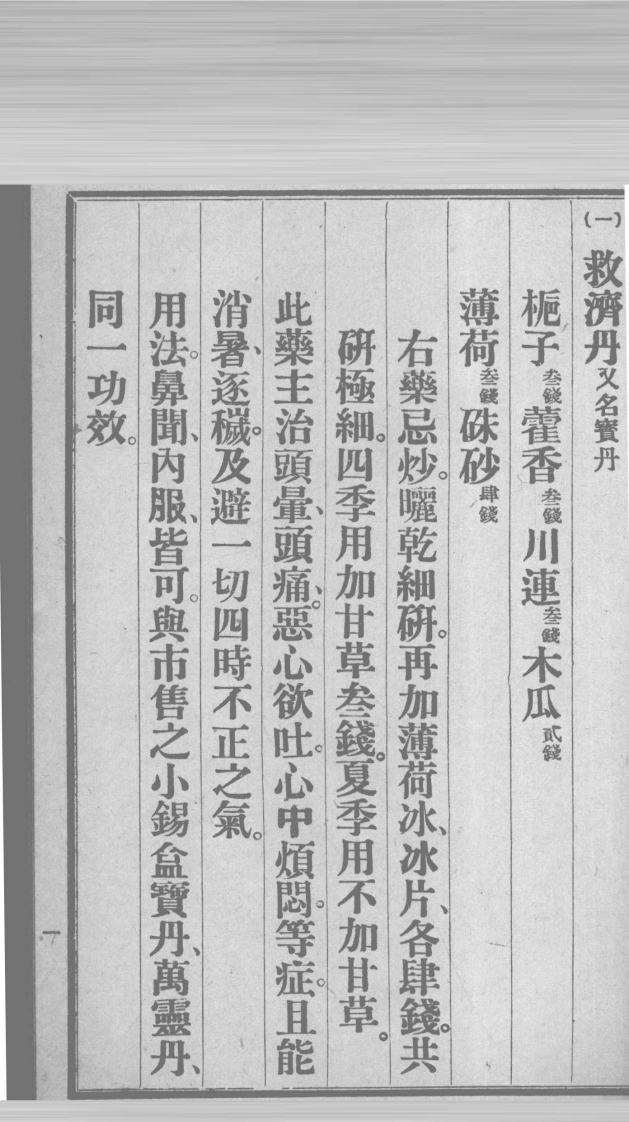 (一) 救濟丹又名寶丹
梔子叁錢藿香叁錢川連叁錢木瓜貳錢
薄荷叁錢硃砂肆錢
右藥忌炒。曬乾細研。再加薄荷冰、冰片、各肆錢。共
研極細。四季用加甘草叁錢。夏季用不加甘草。
此藥主治頭暈、頭痛、惡心欲吐。心中煩悶。等症。且能
消暑、逐穢。及避一切四時不正之氣。
用法。鼻聞、內服、皆可。與市售之小錫盒寶丹、萬靈丹、
同一功效。
一